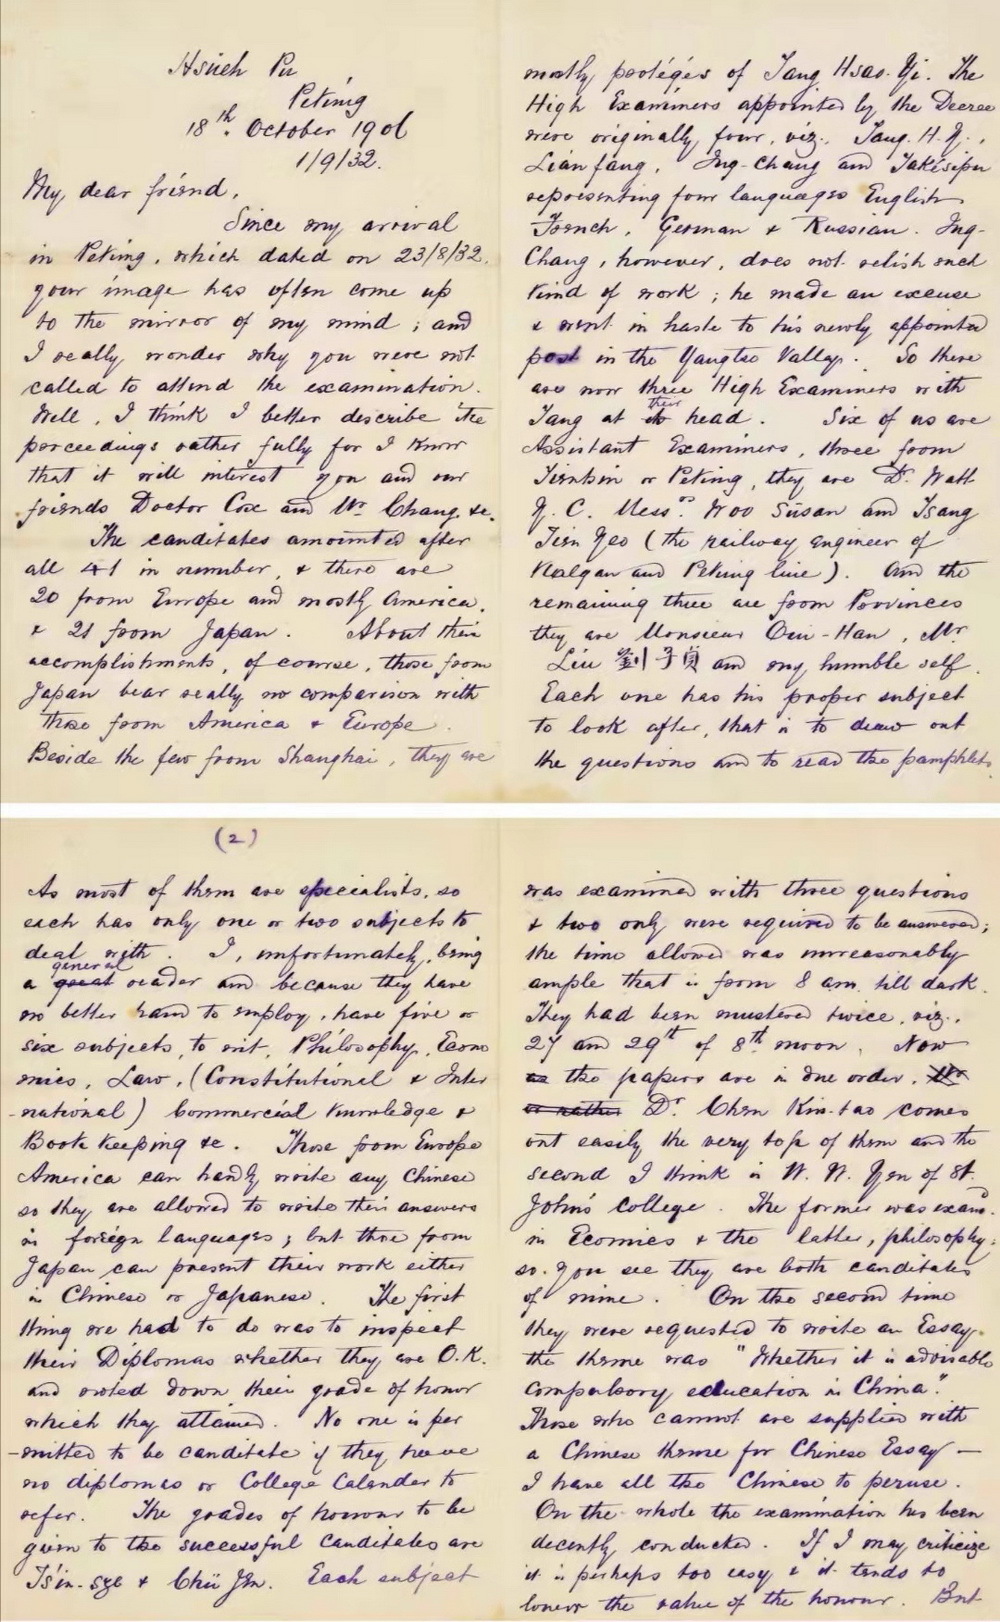 Hsüeh Pu
Peking
18th. October 1906
1/9/32.
My dear friend,
Since my arrival
in Peking, which dated on 23/8/32,
your image has often come up
to the mirror of my mind; and
I really wonder why you were not
called to attend the examination.
Well, I think I better describe the
perceedings rather fully for I know
that it will interest you and our
friends Doctor Cox and Mr Chang &c.
The canditates amounted after
all 41 in number, & there are
20 from Europe and mostly America,
& 21 from Japan. About their
accomplishments, of course, those from
Japan bear really no comparison with
those from America & Europe.
Beside the few from Shanghai, they are
mostly protégés of Tang Hsao-Yi. The
High Examiners appointed by the Decree
were originally four, viz., Tang. H. Y.,
Lian fang, Ing-Chang and Takèsipu
representing four languages English
French, German & Russian. Ing-
Chang, however, does not relish such
kind of work; he made an excuse
& went in haste to his newly appointed
post in the Yangtse Valley. So there
are now three High Examiners with
Tang at their head. Six of us are
Assistant Examiners, three from
Tientsin or Peking, they are Dr. Watt
Y. C. Messrs. Woo Süsan and Tsang
Tien Yeo (the railway engineer of
Kalgan and Peking line). And the
remaining three are from Provinces
they are Monsieur Ou-Han, Mr
Liu 劉子貞 and my humble self.
Each one has his proper subject
to look after, that is to draw out
the questions and to read the pamphlets.
(2)
As most of them are specialists, so
each has only one or two subjects to
deal with. I, unfortunately, being
a general reader and because they have
no better hand to employ, have five or
six subjects, to wit, Philosophy, Econo
mics, Law, (Constitutional & Inter
-national) Commercial Knowledge &
Book Keeping &c. Those from Europe
America can hardly write any Chinese
so they are allowed to write their answers
in foreign languages; but those from
Japan can present their work either
in Chinese or Japanese. The first
thing we had to do was to inspect
their Diplomas whether they are O.K.
and noted down their grade of honor
which they attained. No one is per
-mitted to be canditate if they have
no diplomas or College Calander to
refer. The grades of honour to be
given to the successful canditates are
Tsin-sze & Chü Jen. Each subject
was examined with three questions
& two only were required to be answered;
the time allowed was unreasonably
ample that is from 8 am. till dark.
They had been mustered twice, viz.,
27 and 29th of 8th moon. Now
as the papers are in due order,
or rather Dr. Chen Kin-tao comes
out easily the very top of them and the
second I think is W. W. Yen of St.
John's College. The former was exam.
in Ecomics & the latter, philosophy;
so you see they are both canditates
of mine. On the second time
they were requested to write an Essay.
the theme was "Whether it is advisable
compulsory education in China".
Those who cannot are supplied with
a Chinese theme for Chinese Essay —
I have all the Chinese to peruse.
On the whole the examination has been
decently conducted. If I may criticize
it is perhaps too easy & it tends to
lower the value of the honour. But